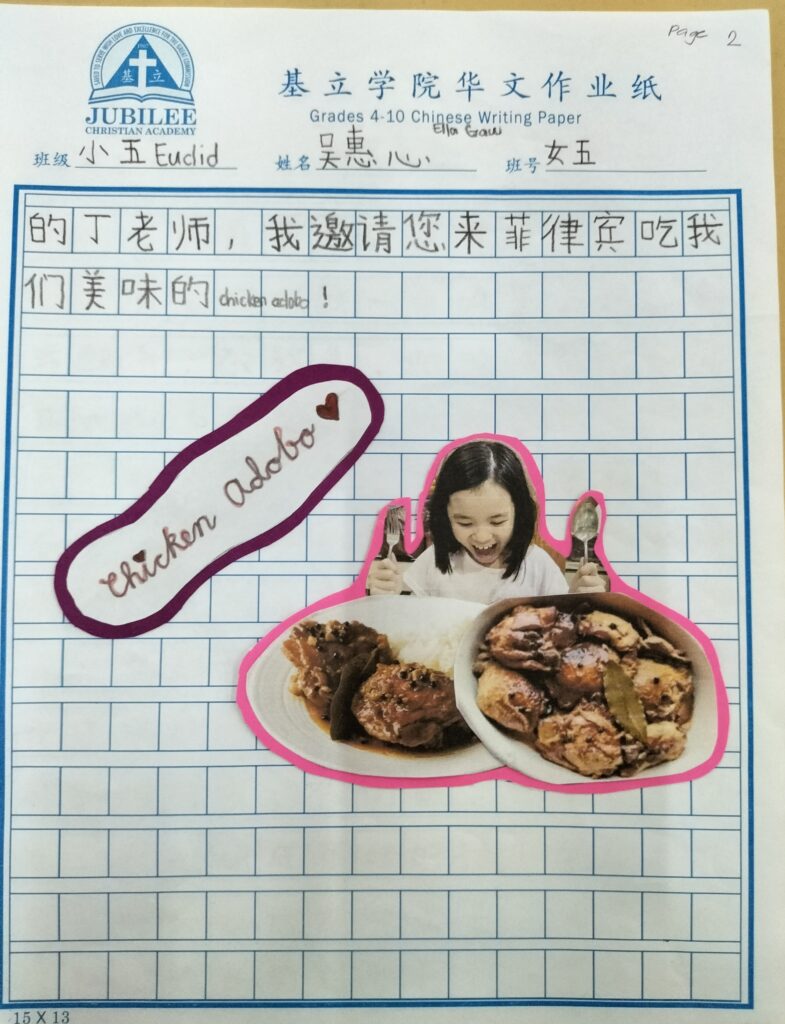 page 2
CALLED TO SERVE WITH LOVE AND EXCELLENCE FOR THE GREAT COMMISSION
基立
JUBILEE
CHRISTIAN ACADEMY
基立学院华文作业纸
Grades 4-10 Chinese Writing Paper
班级 小五 Euclid 姓名 吴惠心 Ella Gaw 班号 女五
的丁老师，我邀请您来菲律宾吃我
们美味的 chicken adobo！
Chicken Adobo
15 X 13